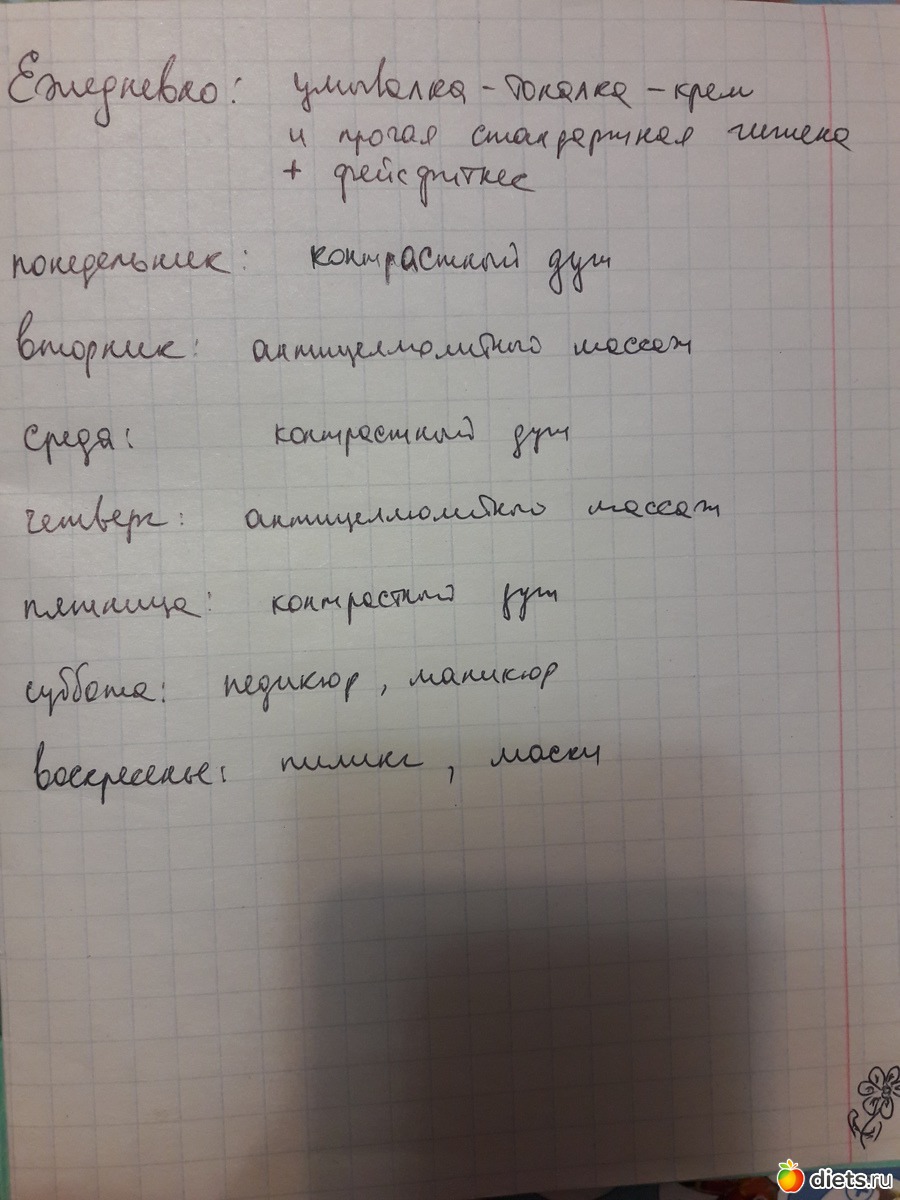 Ежедневно: умывалка - тоналка - крем
и прочая стандартная гигиена
+ фейсфитнес
понедельник: контрастный душ
вторник: антицеллюлитного массаж
среда: контрастный душ
четверг: антицеллюлитного массаж
пятница: контрастный душ
суббота: педикюр, маникюр
воскресенье: пилинг, маски
diets.ru